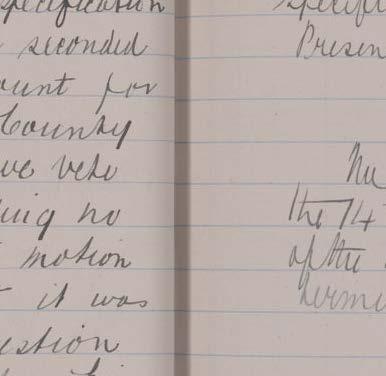 specification
seconded
ount for
County
ve veto
ing no
motion
it was
estion
specifi
Presen
the 14
of the